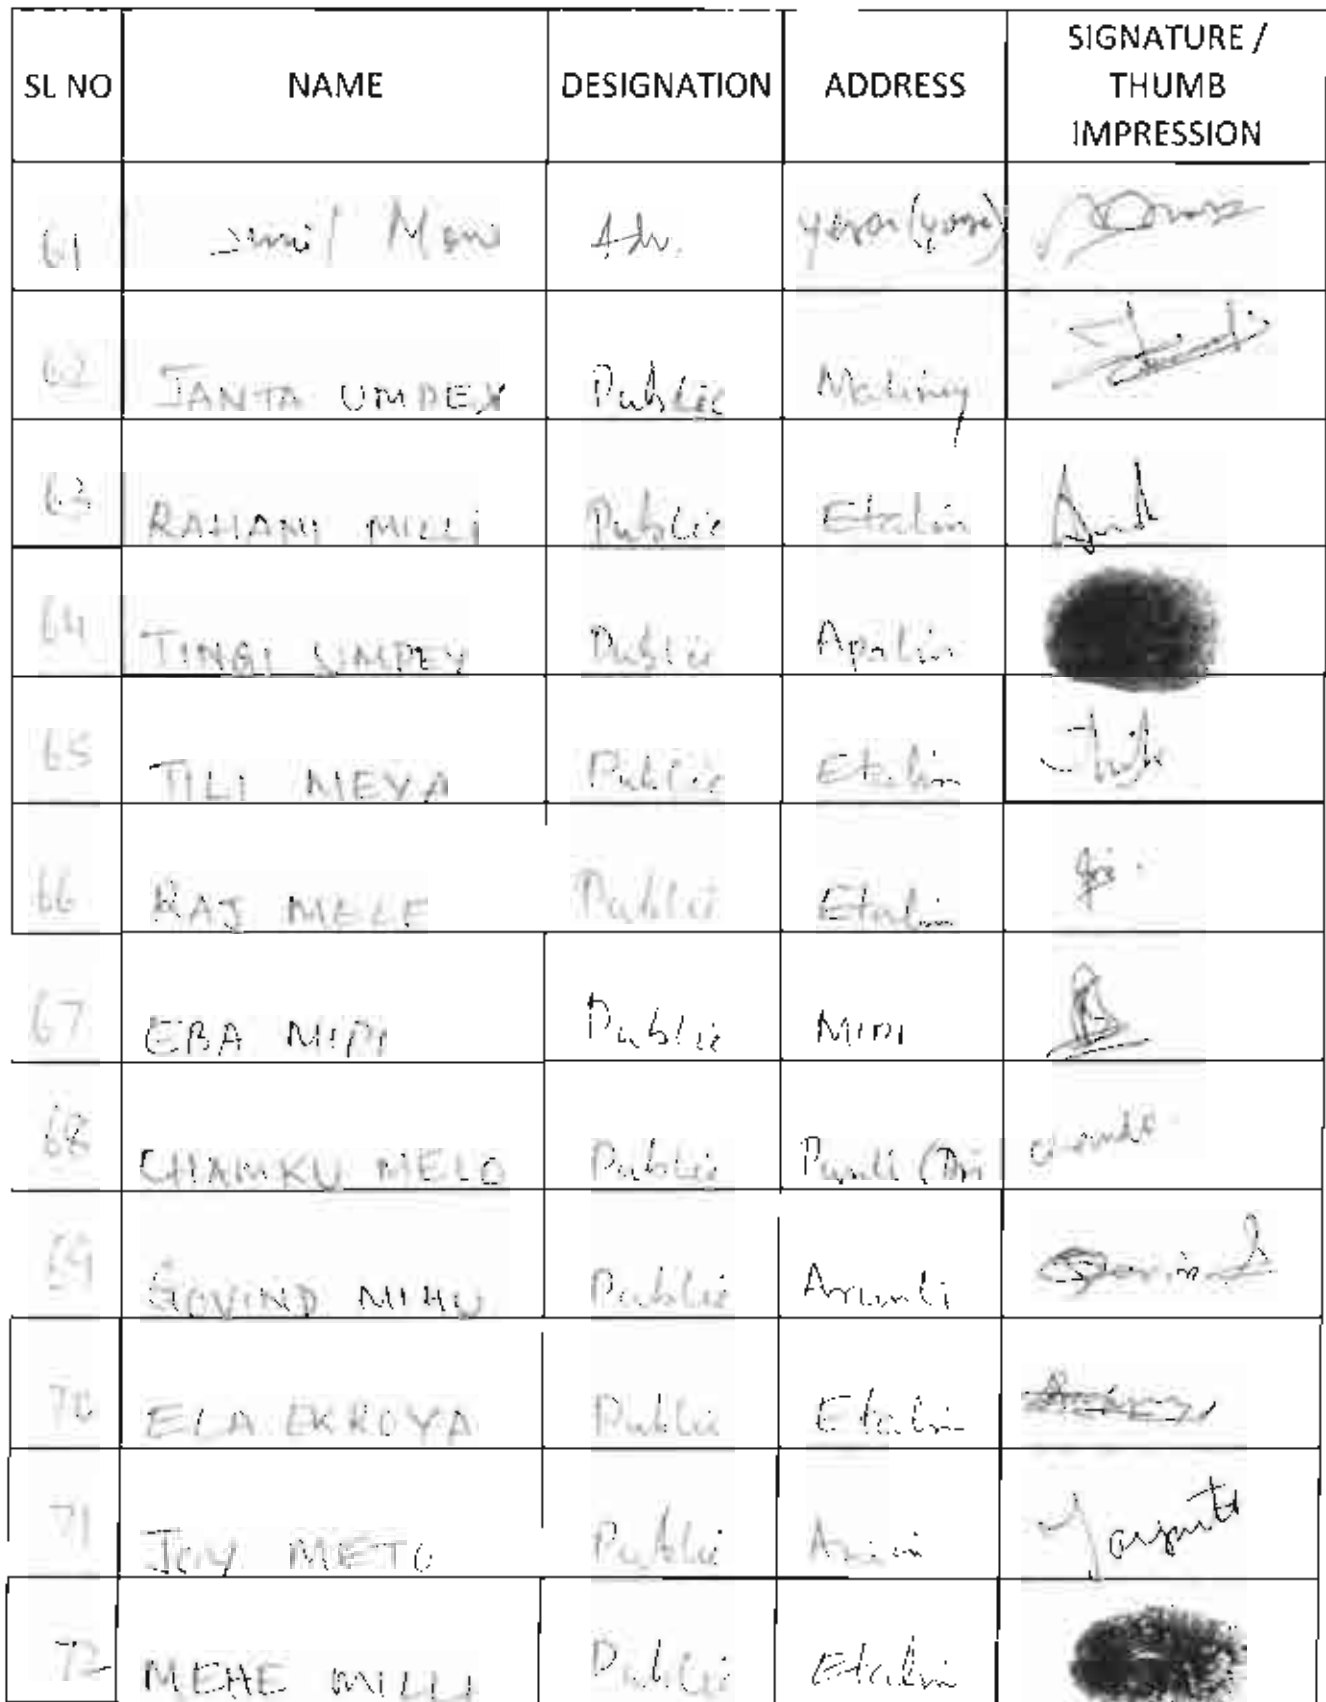 SL NO NAME DESIGNATION ADDRESS SIGNATURE / THUMB IMPRESSION
61 Adv.
62 JANTA UMPEY Public
63 RAHANI MILLI Public Etalin
64 TINGI UMPEY Public Apalin
65 TILI MEYA Public Etalin
66 RAJ MELE Public Etalin
67 EBA MIPI Public MIPI
68 CHAMKU MELO Public
69 GOVIND MIHU Public Arunli
70 ELA EKROYA Public Etalin
71 JOY METO Public
72 MEHE MILLI Public Etalin